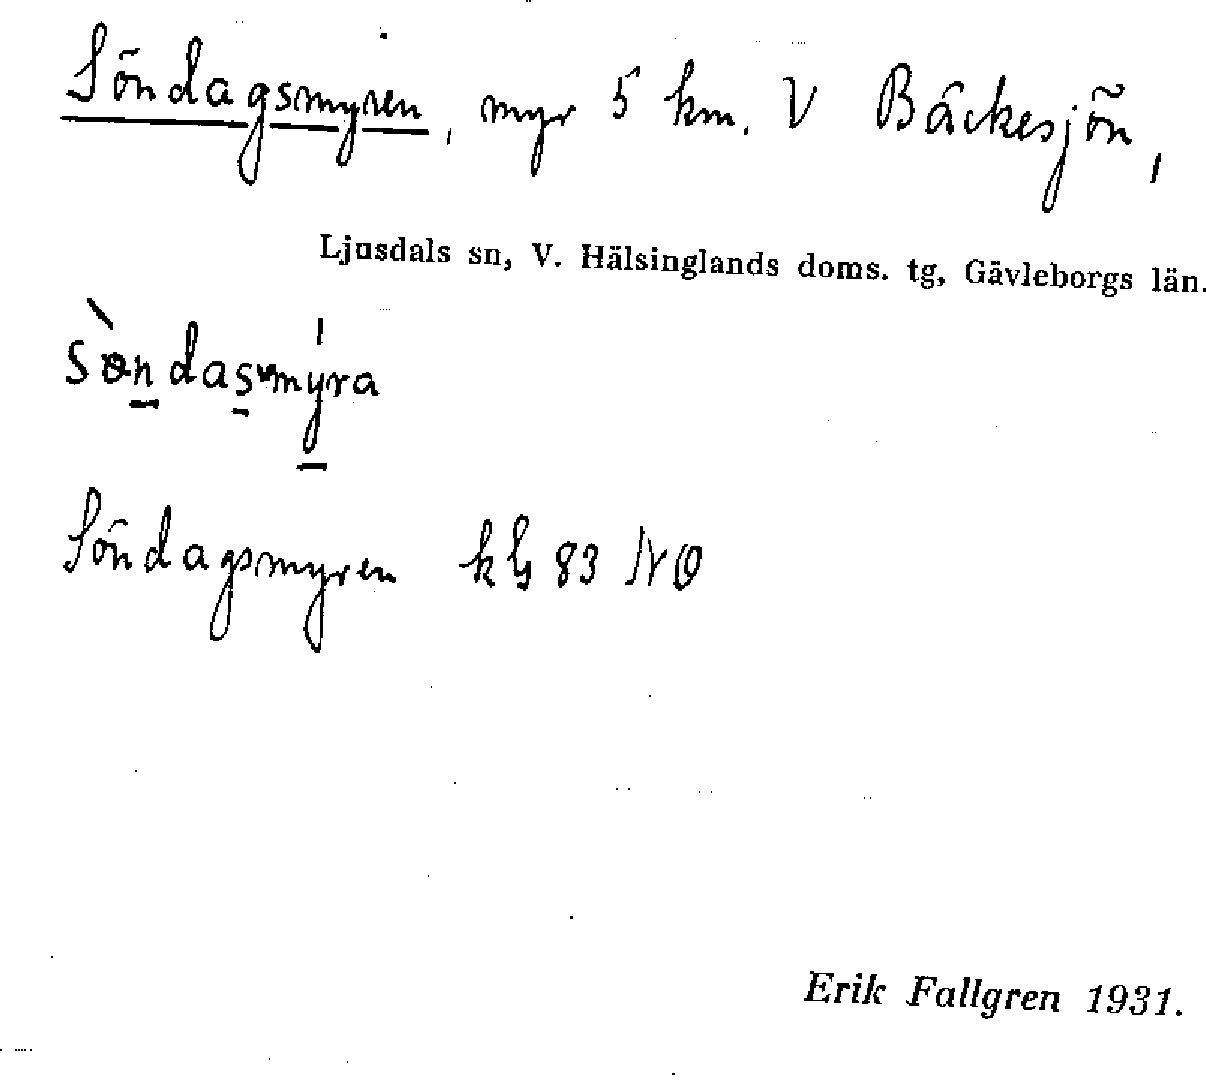 Söndagsmyren, myr 5 km. V Bäckesjön,
Ljusdals sn, V. Hälsinglands doms. tg, Gävleborgs län.
sòndasmýra
Söndagsmyren kbl 83 NO
Erik Fallgren 1931.